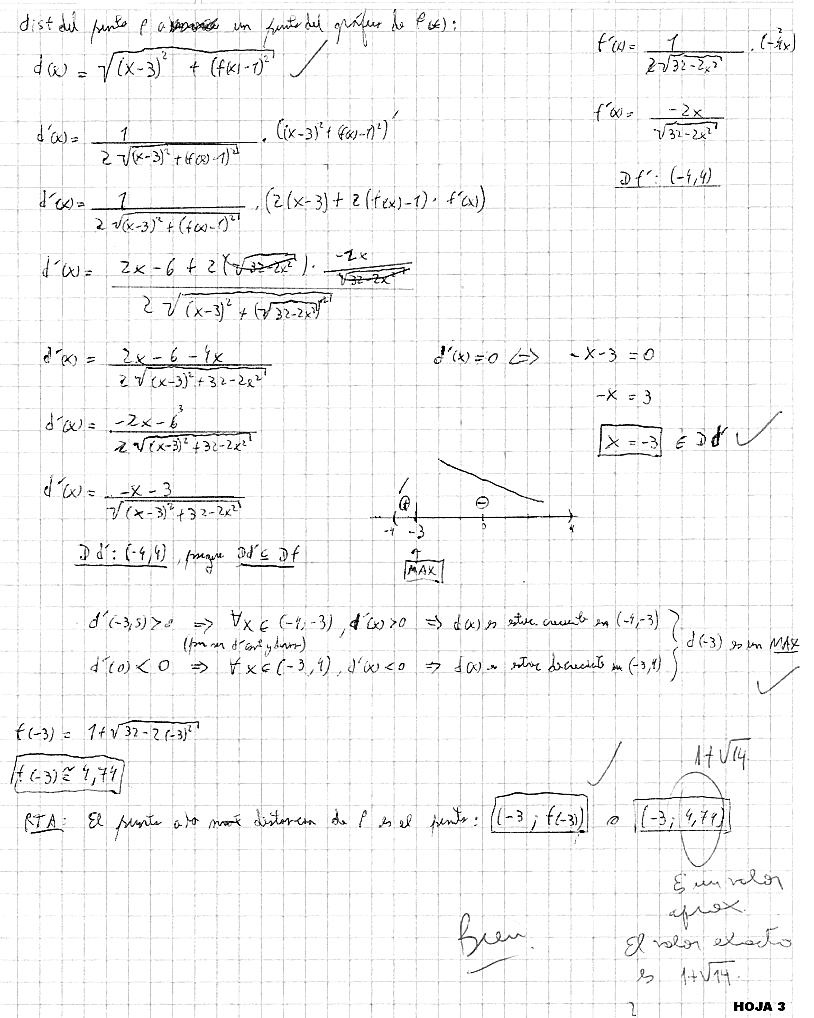 dist del punto P a un punto del gráfico de f(x):
d(x) = √((x-3)² + (f(x)-1)²) ✓
f'(x) = 1 / (2√(32-2x²)) . (-4x)
d'(x) = 1 / (2√((x-3)²+(f(x)-1)²)) . ((x-3)²+(f(x)-1)²)'
f'(x) = -2x / √(32-2x²)
Df': (-4,4)
d'(x) = 1 / (2√((x-3)²+(f(x)-1)²)) . (2(x-3) + 2(f(x)-1) . f'(x))
d'(x) = (2x-6+2(√(32-2x²)) . -2x/√(32-2x²)) / (2√((x-3)²+(√(32-2x²))²))
d'(x) = (2x-6-4x) / (2√((x-3)²+32-2x²))
d'(x)=0 ⟺ -x-3 = 0
-x = 3
x = -3 ∈ Dd' ✓
d'(x) = (-2x-6) / (2√((x-3)²+32-2x²)) 3
d'(x) = (-x-3) / √((x-3)²+32-2x²)
⊕ ⊖
-4 -3 0 4
MAX
Dd': (-4,4), porque Dd' ⊆ Df
d'(-3,5)>0 ⟹ ∀x∈(-4,-3), d'(x)>0 ⟹ d(x) es estric. creciente en (-4,-3)
(por ser d' cont y Bolzano)
d'(0)<0 ⟹ ∀x∈(-3,4), d'(x)<0 ⟹ d(x) es estric decreciente en (-3,4)
} d(-3) es un MAX ✓
f(-3) = 1+√(32-2(-3)²)
f(-3) ≅ 4,74
1+√14
RTA: El punto a distancia de P es el punto: (-3 ; f(-3)) o (-3; 4,74) ✓
Es un valor
aprox.
Bien
El valor exacto
es 1+√14.
HOJA 3